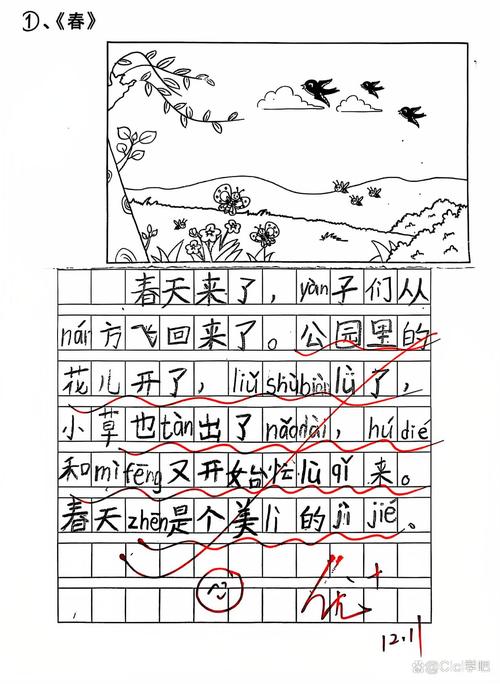 ①、《春》
春天来了，yàn子们从
nán方飞回来了。公园里的
花儿开了，liǔ shù biàn lǜ了，
小草也tàn出了nǎodài，hú dié
和mì fēng又开始忙lù qǐ来。
春天zhēn是个美lì的jì jié。
优+
12.11
@CICI学吧